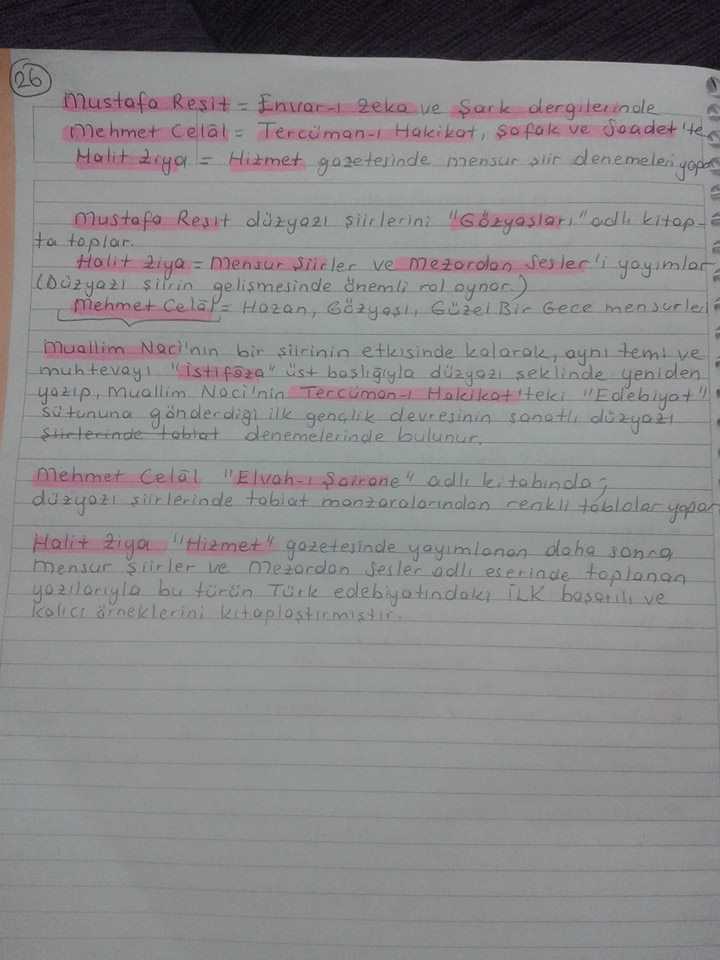 26
Mustafa Reşit = Envar-ı Zeka ve Şark dergilerinde
Mehmet Celâl = Tercüman-ı Hakikat, Şafak ve Saadet'te
Halit Ziya = Hizmet gazetesinde mensur şiir denemeleri yapar
Mustafa Reşit düzyazı şiirlerini "Gözyaşları" adlı kitap-
ta toplar.
Halit Ziya = Mensur Şiirler ve Mezardan Sesler'i yayımlar
(Düzyazı şiirin gelişmesinde önemli rol oynar.)
Mehmet Celâl = Hazan, Gözyaşı, Güzel Bir Gece mensurleri
Muallim Naci'nin bir şiirinin etkisinde kalarak, aynı temi ve
muhtevayı "İstifâza" üst başlığıyla düzyazı şeklinde yeniden
yazıp, Muallim Naci'nin Tercüman-ı Hakikat'teki "Edebiyat"
sütununa gönderdiği ilk gençlik devresinin sanatlı düzyazı
şiirlerinde tabiat denemelerinde bulunur.
Mehmet Celâl "Elvah-ı Şairane" adlı kitabında;
düzyazı şiirlerinde tabiat manzaralarından renkli tablolar yapar
Halit Ziya "Hizmet" gazetesinde yayımlanan daha sonra
Mensur Şiirler ve Mezardan Sesler adlı eserinde toplanan
yazılarıyla bu türün Türk edebiyatındaki İLK başarılı ve
kalıcı örneklerini kitaplaştırmıştır.